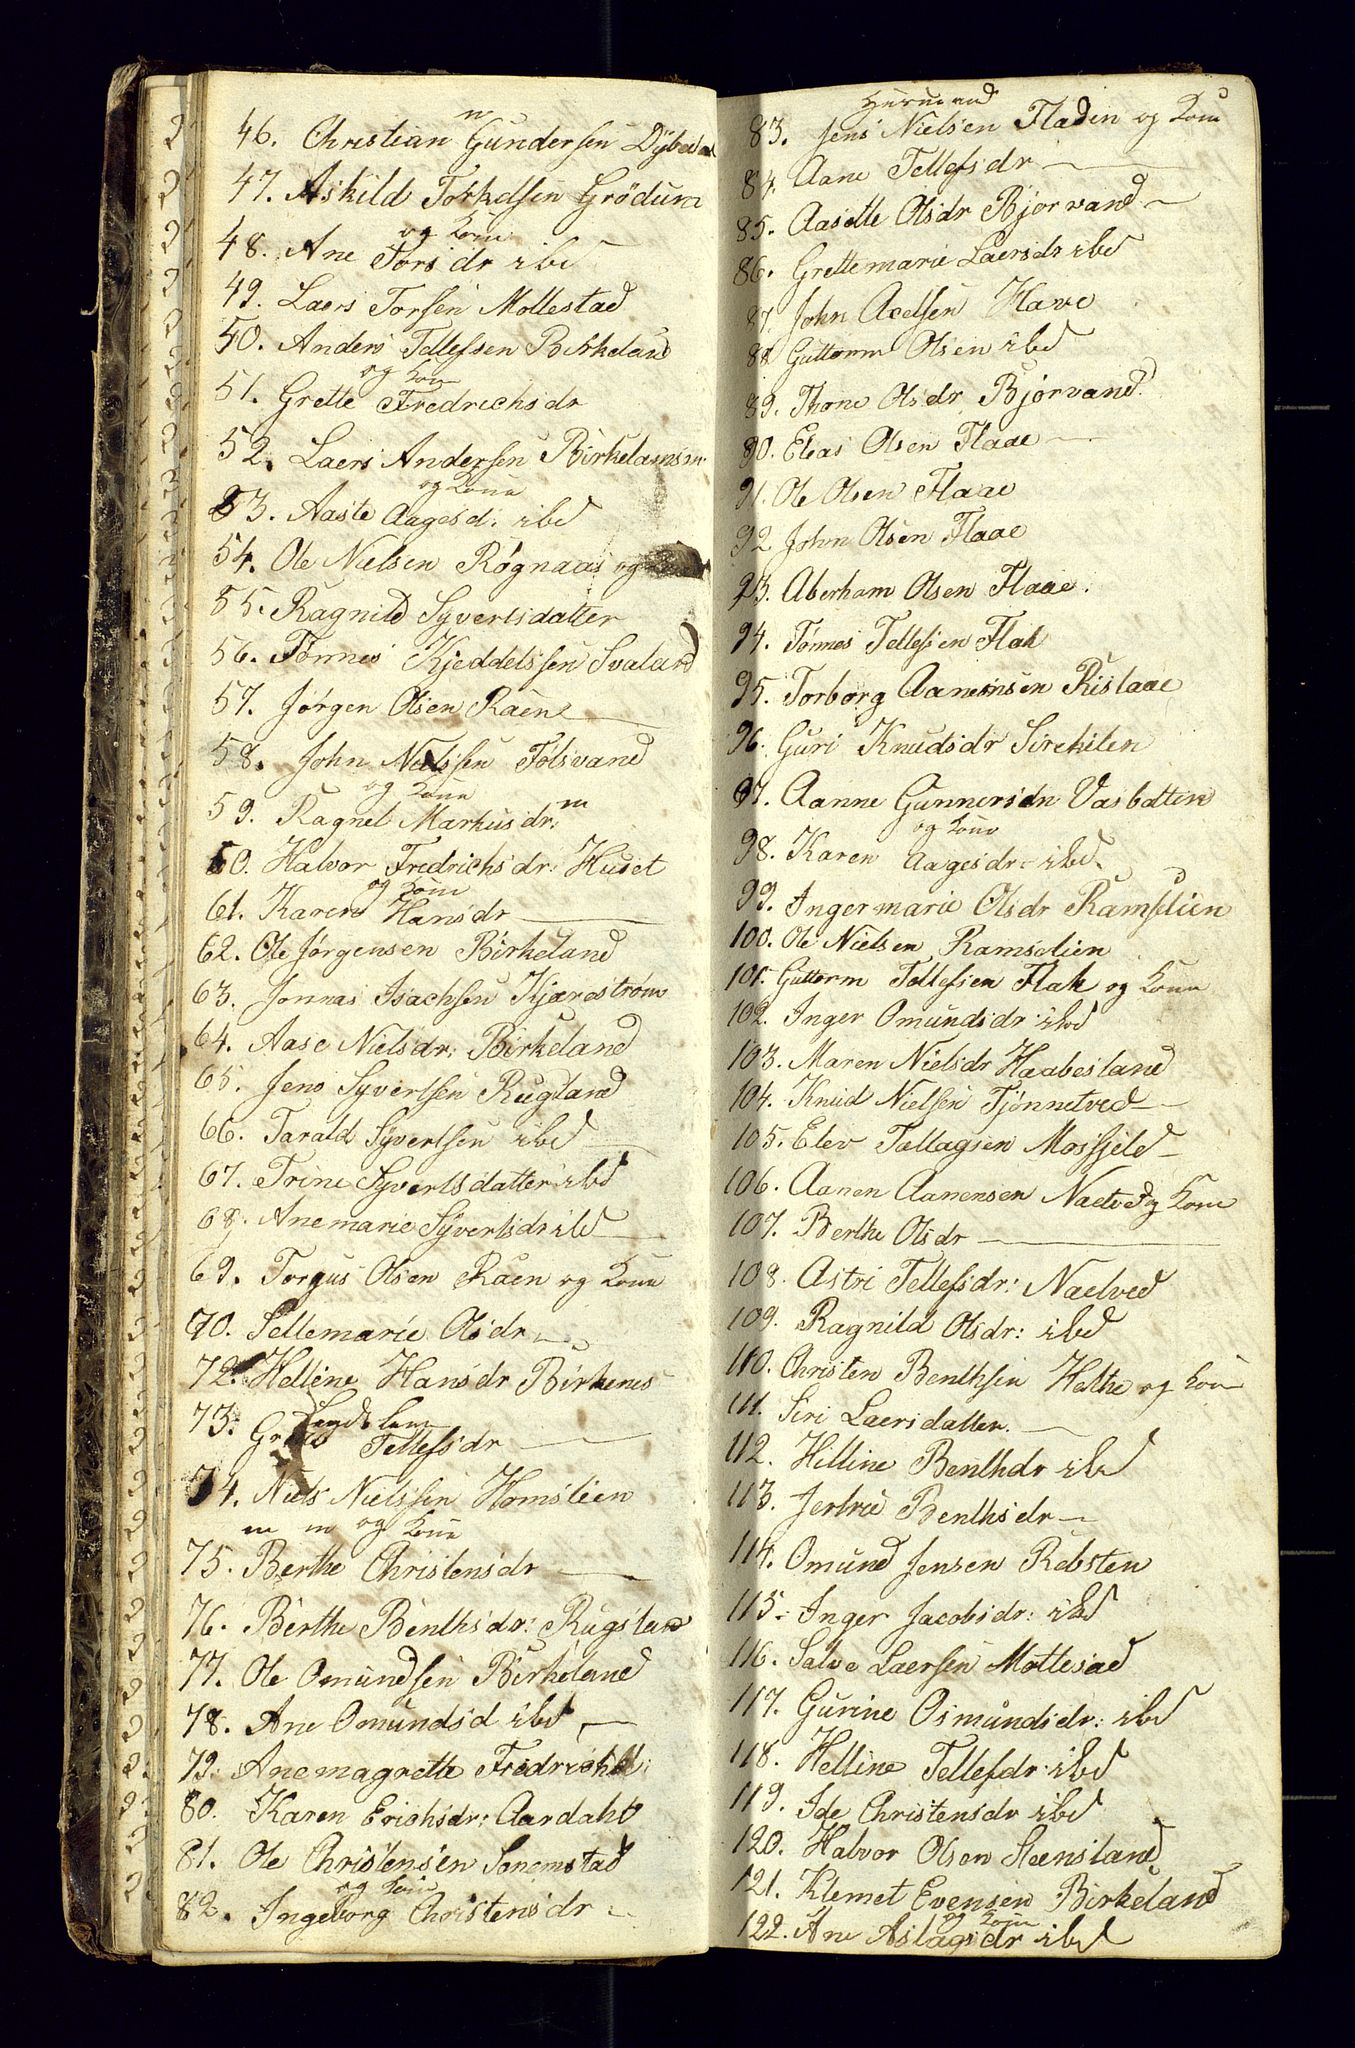 46. Christian Gundersen
47. Askild Torkelsen Grödum
og Kone
48. Ane Torsdr ibd
49. Laers Torsen Mollestad
50. Anders Tellefsen Birkeland
og Kone
51. Grette Fredrichsdr
52. Laers Andersen
og Kone
53. Aaste Aagesd: ibd
54. Ole Nielsen Røgnaas og
55. Ragnild Syvertsdatter
56. Tønnes Kjeddelssen Svaland
57. Jørgen Olsen Raen
58. John Nielssen Følsvand
og Kone
59. Ragnel Markusdr:
60. Halvor Fredrichsdr: Huset
og Kone
61. Karen Hansdr
62. Ole Jørgensen Birkeland
63. Jonnas Isachsen Kjærestrøm
64. Aase Nielsdr: Birkeland
65. Jens Syvertsen Rugland
66. Tarald Syvertsen ibd
67. Trine Syvertsdatter ibd
68. Anemarie Syvertsdr ibd
69. Torgus Olsen Raen og Kone
70. Sellemarie Olsdr
72. Helline Hansdr Birkenes
73. Tellefsdr
74. Niels Nielssen Homslien
og Kone
75. Berthe Christensdr
76. Berthe Benthsdr: Rugsland
77. Ole Omundsen Birkeland
78. Ane Omundsd ibd
79. Anemagrethe
80. Karen Erichsdr: Aardahl
81. Ole Christensen Senemstad
og Kone
82. Ingeborg Christensdr
83. Jens Nielsen Fladen og Kone
84. Aane Tellefsdr
85. Aasette Olsdr Bjorvand
86. Grettemarie Laersdr ibd
87. John Acelsen Have
88. Guttorm Olsen ibd
89. Thone Olsdr Bjorvand
90. Eleas Olsen Flaae
91. Ole Olsen Flaae
92. John Olsen Flaae
93. Aberham Olsen Flaae.
94. Tønnes Tellefsen Flak
95. Torborg Aanensen Rislaae
96. Guri Knudsdr Sirekilen
97. Aanne Gunnersdn Vasbotten
og Kone
98. Karen Aagesdr: ibd.
99. Ingermarie Olsdr Ramselien
100. Ole Nielsen Ramselien
101. Guttorm Tellefsen Flak og Kone
102. Inger Omundsdr ibd
103. Maren Nielsdr Haabesland
104. Knud Nielsen Tjønnetved
105. Elev Tallagsen Mosfjeld
106. Aanen Aanensen Naetved og Kone
107. Berthe Olsdr
108. Astri Tellefsdr: Naelved
109. Ragnild Olsdr: ibd
110. Christen Benthsen Helhe og Kone
111. Siri Laersdatter.
112. Helline Benthdr ibd
113. Jertrud Benthsdr
114. Omund Jensen Rebsten
115. Inger Jacobsdr: ibd
116. Salve Laersen Mollesad
117. Gurine Osmundsdr: ibd
118. Helline Tellefdr: ibd
119. Ide Christensdr ibd
120. Halvor Olsen Steensland
121. Klemet Evensen Birkeland
og Kone
122. Ane Aslagsdr ibd